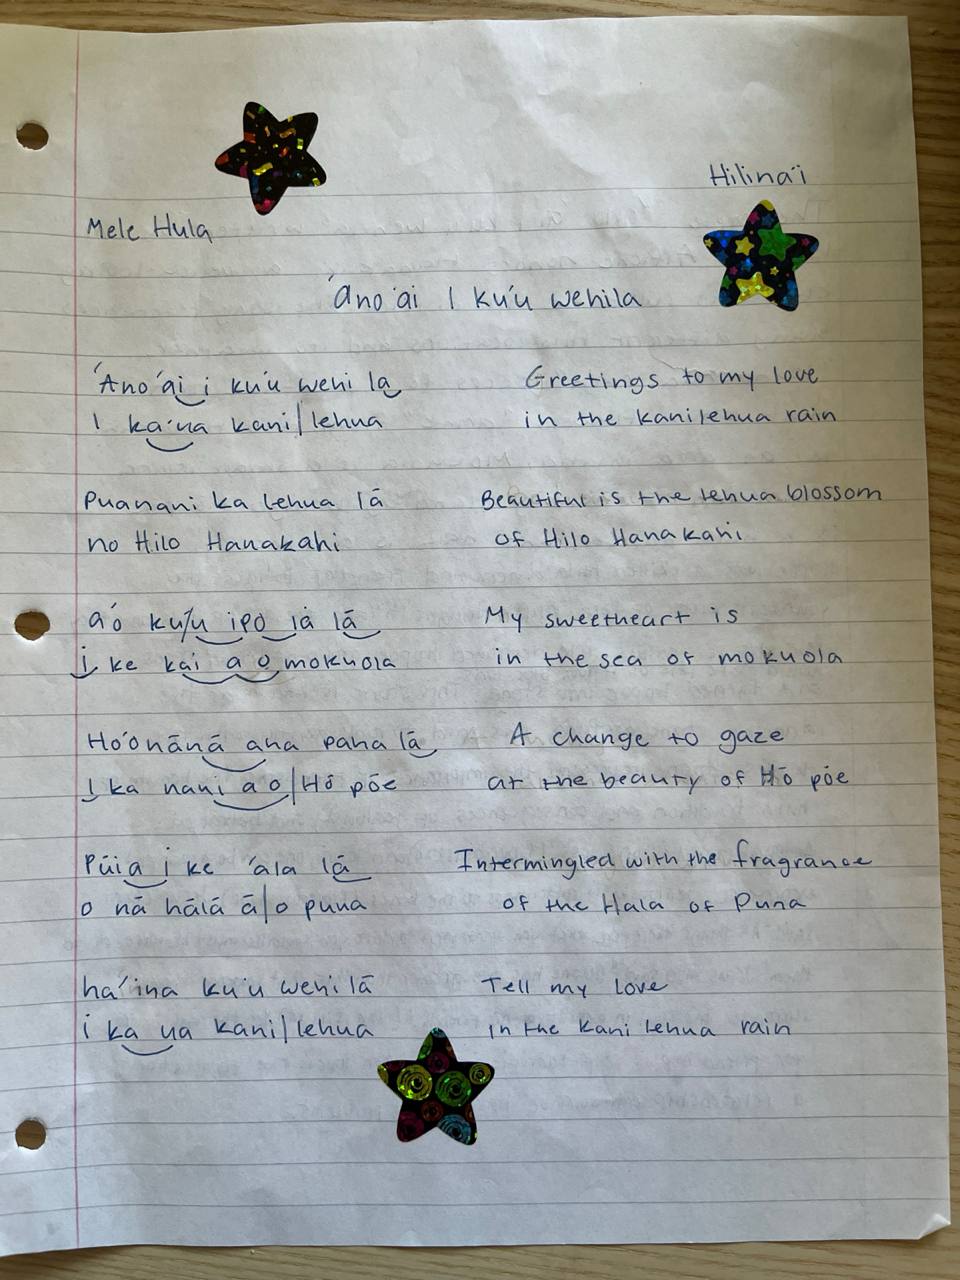 Hilina'i
Mele Hula
'Ano'ai I ku'u wehila
'Ano'ai i ku'u wehi la
I ka'ua kani/lehua
Greetings to my love
in the kanilehua rain
Puanani ka lehua lā
no Hilo Hanakahi
Beautiful is the lehua blossom
of Hilo Hanakahi
a'o ku/u ipo lā lā
i ke kai a o mokuola
My sweetheart is
in the sea of mokuola
Ho'onānā ana paha lā
I ka nani a o/Hō pōe
A change to gaze
at the beauty of Hō pōe
Pūia i ke 'ala lā
o nā hālā ā/o puna
Intermingled with the fragrance
of the Hala of Puna
ha'ina ku'u wehi lā
i ka ua kani/lehua
Tell my love
In the Kani lehua rain